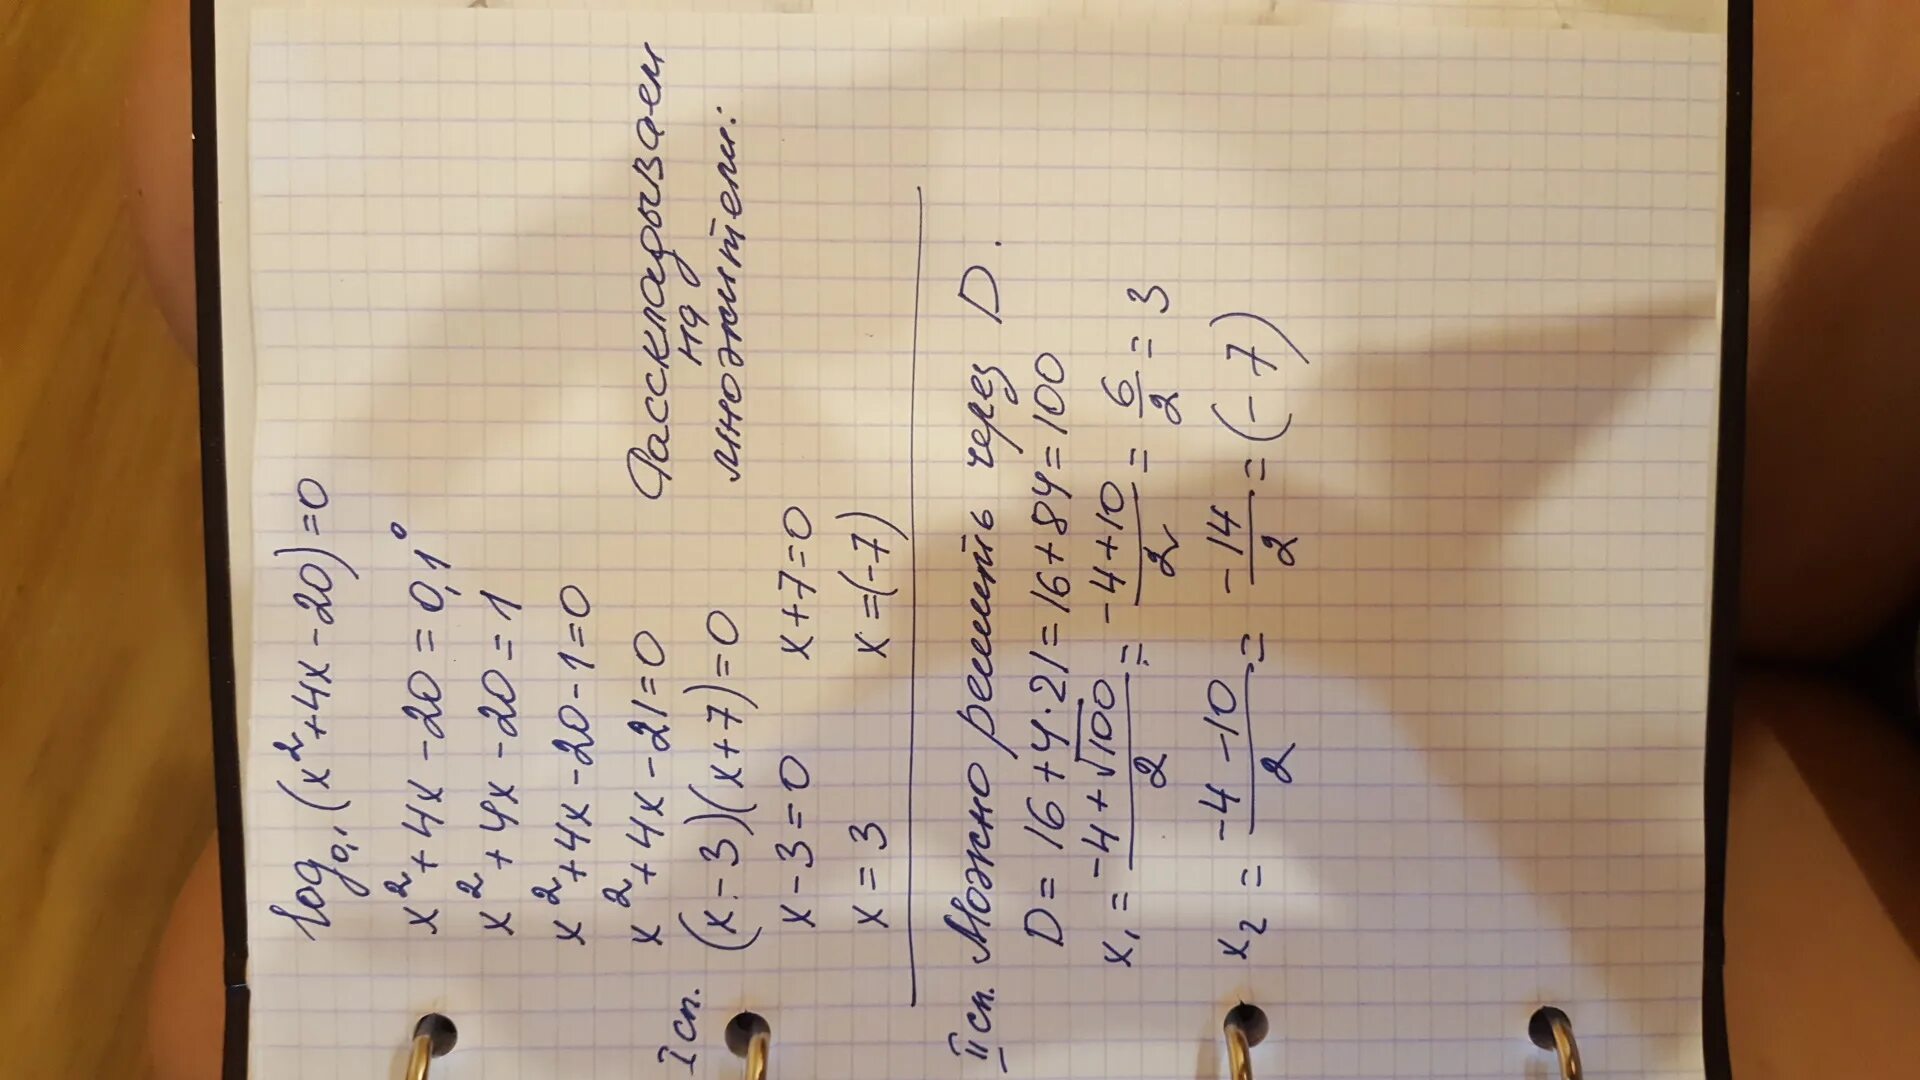 log₀,₁(x²+4x-20)=0
x²+4x-20=0,1⁰
x²+4x-20=1
x²+4x-20-1=0
x²+4x-21=0
Расскладываем
на
множители:
I сп. (x-3)(x+7)=0
x-3=0 x+7=0
x=3 x=(-7)
II сп. Можно решить через D.
D=16+4·21=16+84=100
x₁=\frac{-4+√100}{2}=\frac{-4+10}{2}=\frac{6}{2}=3
x₂=\frac{-4-10}{2}=\frac{-14}{2}=(-7)